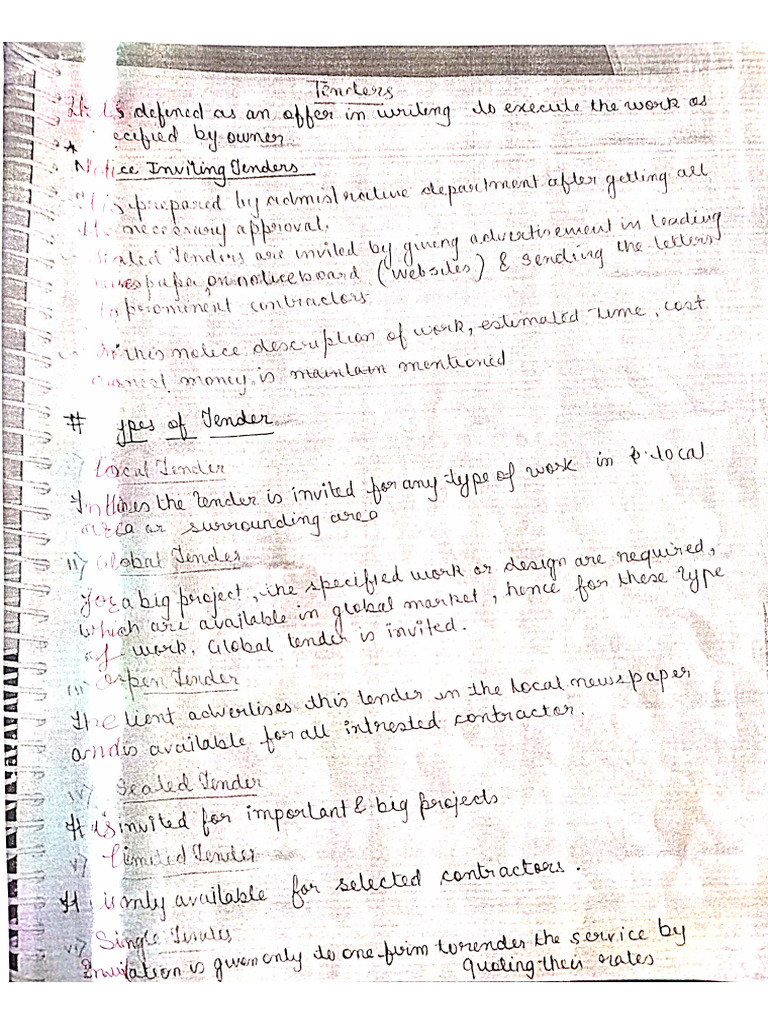 Tenders
It is defined as an offer in writing to execute the work as
ecified by owner.
Notice Inviting Tenders
It is prepared by administrative department after getting all
the neccesary approval.
Sealed Tenders are invited by giving advertisement in leading
newspaper, on notice board (websites) & sending the letters
to prominent contractors
In this notice description of work, estimated time, cost
earnest money is maintain mentioned
# ypes of Tender
i) Local Tender
In the tender is invited for any type of work in local
area or surrounding area
ii) Global Tender
For a big project, the specified work or design are required,
which are available in global market, hence for these type
of work, Global tender is invited.
iii) Open Tender
The lient advertises this tender in the local newspaper
and is available for all intrested contractor.
iv) Sealed Tender
It is invited for important & big projects
v) Limited Tender
It is only available for selected contractors.
vi) Single Tender
Invitation is given only to one firm to render the service by
quoting their rates